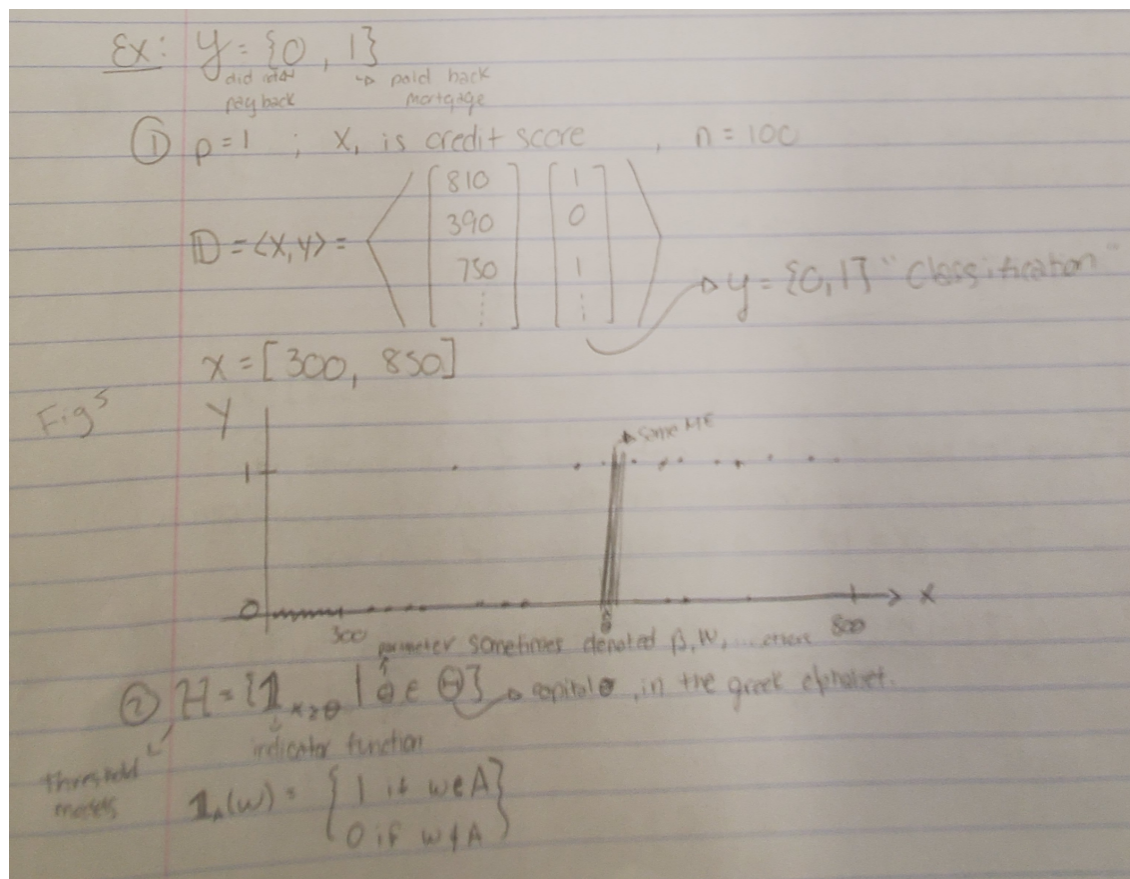 Ex: y = {0, 1}
did not ↳ paid back
pay back mortgage
① p=1 ; x₁ is credit score , n = 100
810 1
390 0
𝔻 = <X,y> =
750 1
⋮ ⋮
→ y = {0,1} "Classification"
x = [300, 850]
Fig 5 Y
→ Same ME
1
0 x
300 800
parameter sometimes denoted β, W, ...
② H = {𝟙 x≥θ | θ ∈ Θ} → capital θ, in the greek alphabet.
indicator function
threshold
models
𝟙A(w) = {1 if w∈A
0 if w∉A}